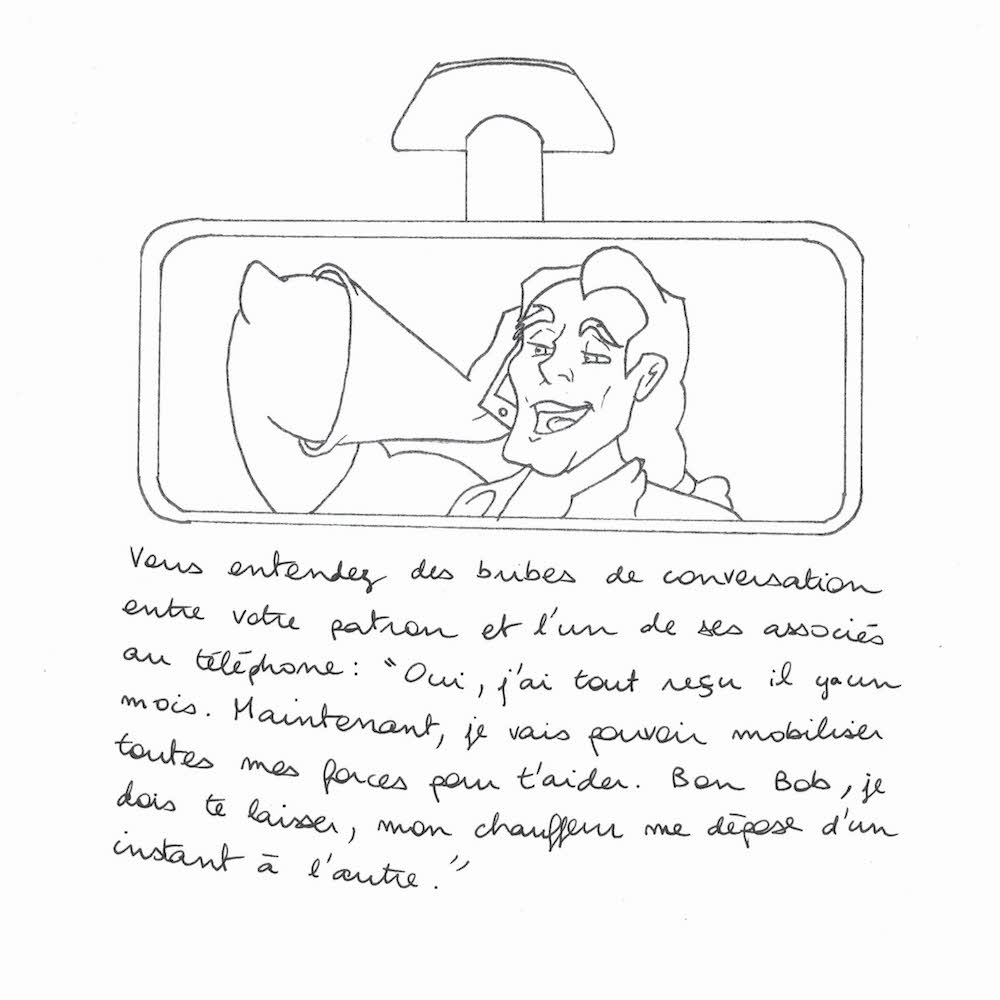 Vous entendez des bribes de conversation
entre votre patron et l'un de ses associés
au téléphone : "Oui, j'ai tout reçu il y a un
mois. Maintenant, je vais pouvoir mobiliser
toutes mes forces pour t'aider. Bon Bob, je
dois te laisser, mon chauffeur me dépose d'un
instant à l'autre."